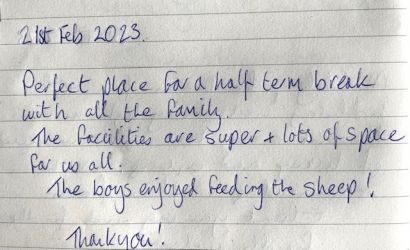 21st Feb 2023.
Perfect place for a half term break
with all the family.
The facilities are super + lots of space
for us all.
The boys enjoyed feeding the sheep!
Thankyou!